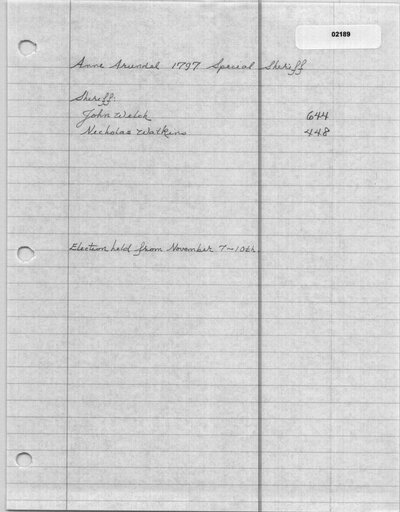 02189
Anne Arundel 1797 Special Sheriff
Sheriff:
John Welch 644
Nicholas Watkins 448
Election held from November 7-10th.